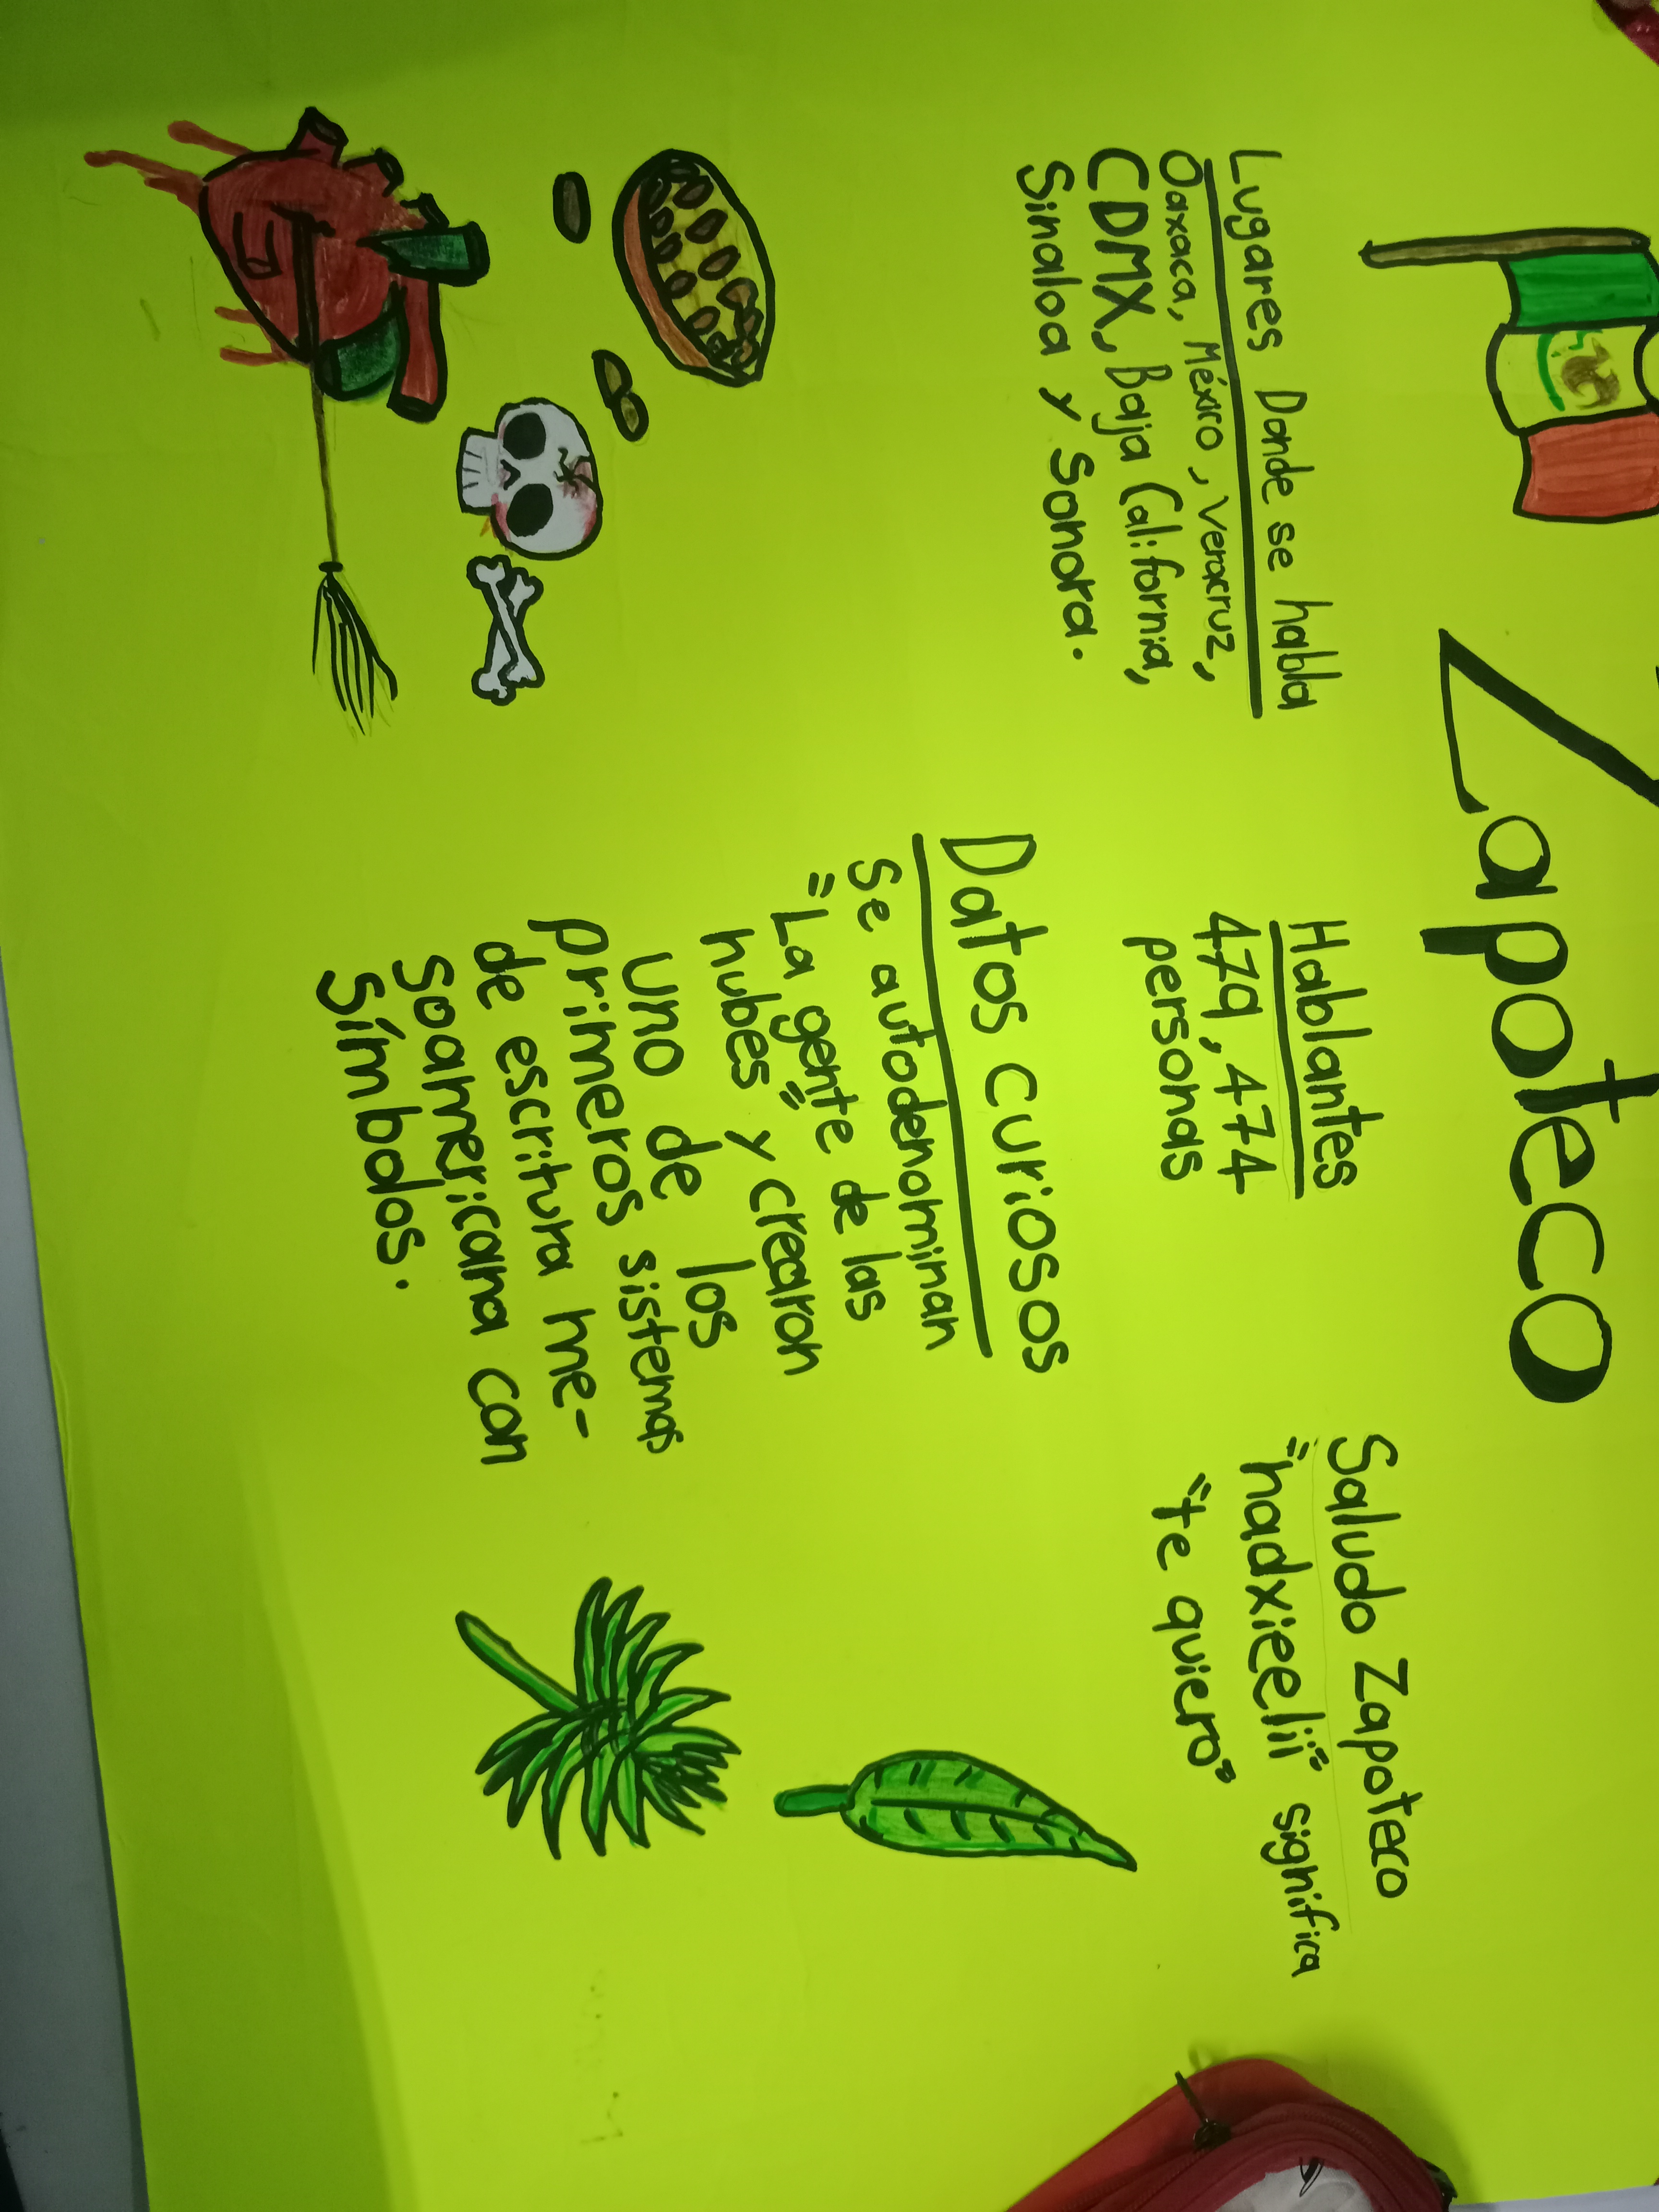 Zapoteco
Lugares Donde se habla
Oaxaca, México, Veracruz,
CDMX, Baja California,
Sinaloa y Sonora.
Hablantes
479,474
personas
Saludo Zapoteco
"nadxieelii" significa
"te quiero"
Datos curiosos
Se autodenominan
"La gente de las
nubes" y crearon
uno de los
primeros sistemas
de escritura me-
soamericana con
Símbolos.